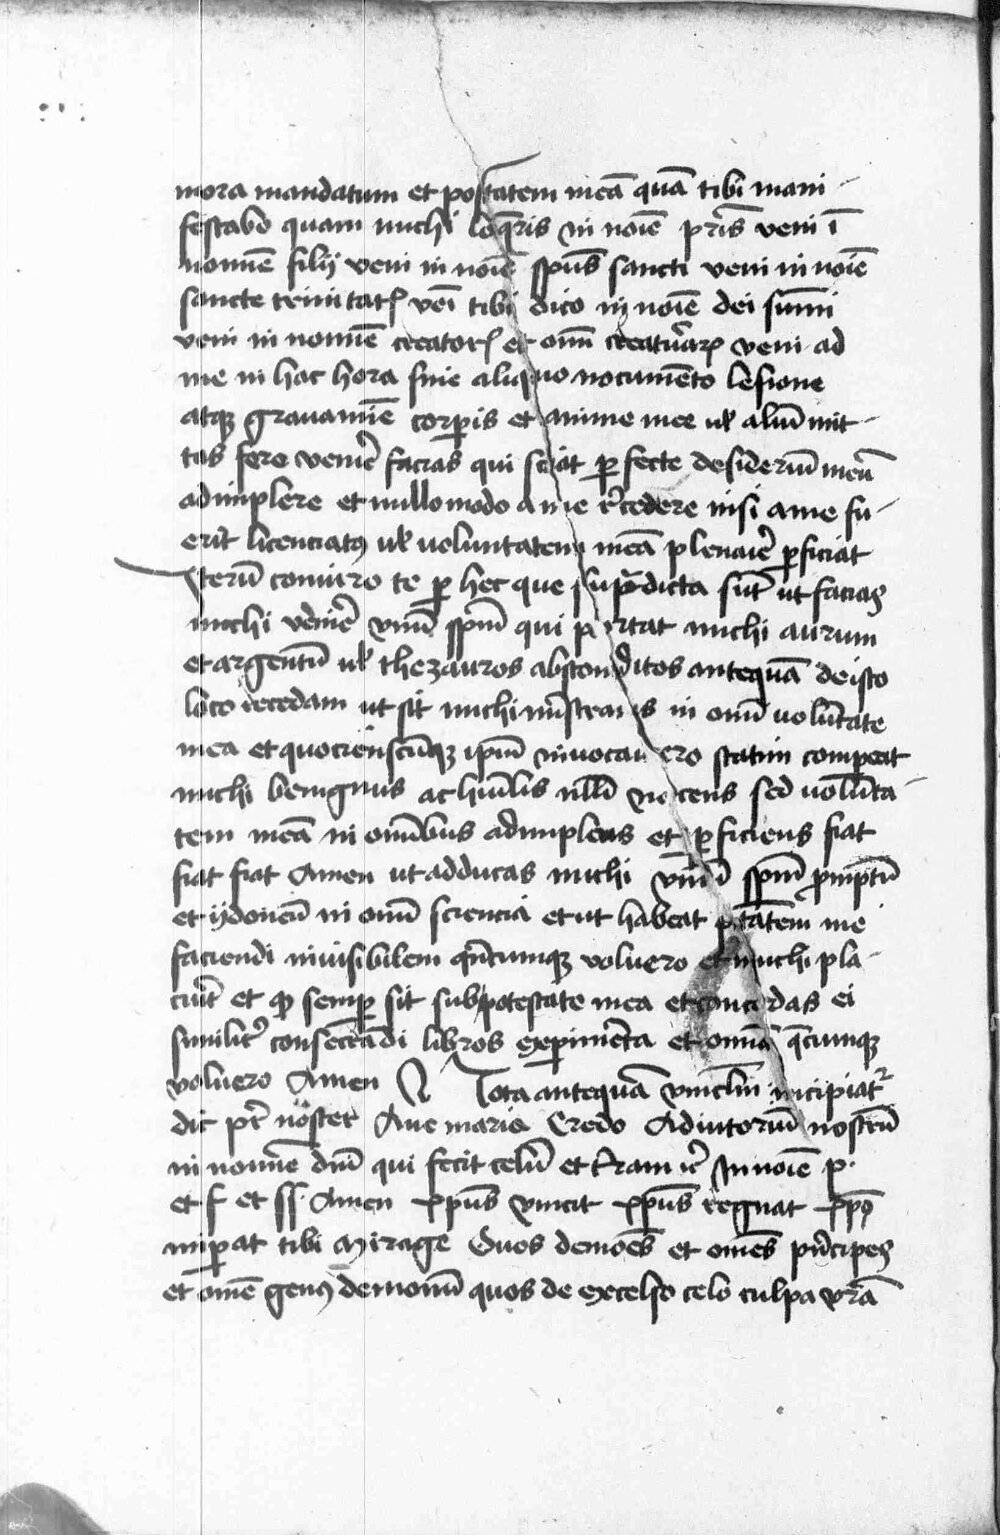 mora mandatum et po͞statem meā quā tibi mani-
festabo quam michi loq̄ris in noīe pr̄is veni ī
nomīe filij veni in noīe sp̄us sancti veni in noīe
sancte trinitatꝭ veī tibi dico in noīe dei sum̄i
veni in nomīe creatorꝭ et om̄i creatur̄arꝭ veni ad
me in hac hora sine aliquo nocumēto lesione
atqꝫ grauamīe corꝑis et anime mee uł aliū mit-
tas fere venir̄ facias qui sciāt ꝑfecte desideriū meū
adimplere et nullomodo a me r̄cedere nisi a me fu-
erit licenciatꝰ uł voluntatem meā plenaīe ꝑficiat
Iterū coniuro te ꝑ hec que sup̄dicta sūt ut facias
michi venir̄ vnū sp̄m qui portat michi aurum
et argentū uł thezauros absconditos antequā de isto
loco recedam ut sit michi mīstrans in om̄i volūtate
mea et quociēnscūqꝫ ip̄m inuocauero statim compeat
michi benignus ac hūilis nll̄i nocens sed volūta-
tem meā in omībus adimplens et ꝑficiens fiat
fiat fiat Amen ut adducas michi vnū sp̄m prōptū
et ijdoneū in om̄i sciencia et ut habeat ptātem me
faciendi inuisibilem qn̄cumqꝫ voluero et michi pla-
cuīt et qꝫ semꝑ sit sub potestate mea et concedas ei
similit̄ consecrādi libros exꝑimēta et omīa q̄cumqꝫ
voluero Amen Nota antequā vincl̄m incipiatᷣ
dic pr̄ noster Aue maria Credo Adiutoriū nostrū
in nomīe dn̄i qui fecit celū et t̄ram ic̄ In noīe p.
et f et ss. Amen xp̄us vincit xp̄us regnat xp̄o
imꝑat tibi Mirage Quos demōes et omēs pn̄cipes
et omē genꝰ demonū quos de excelso celo culpa vr̄a